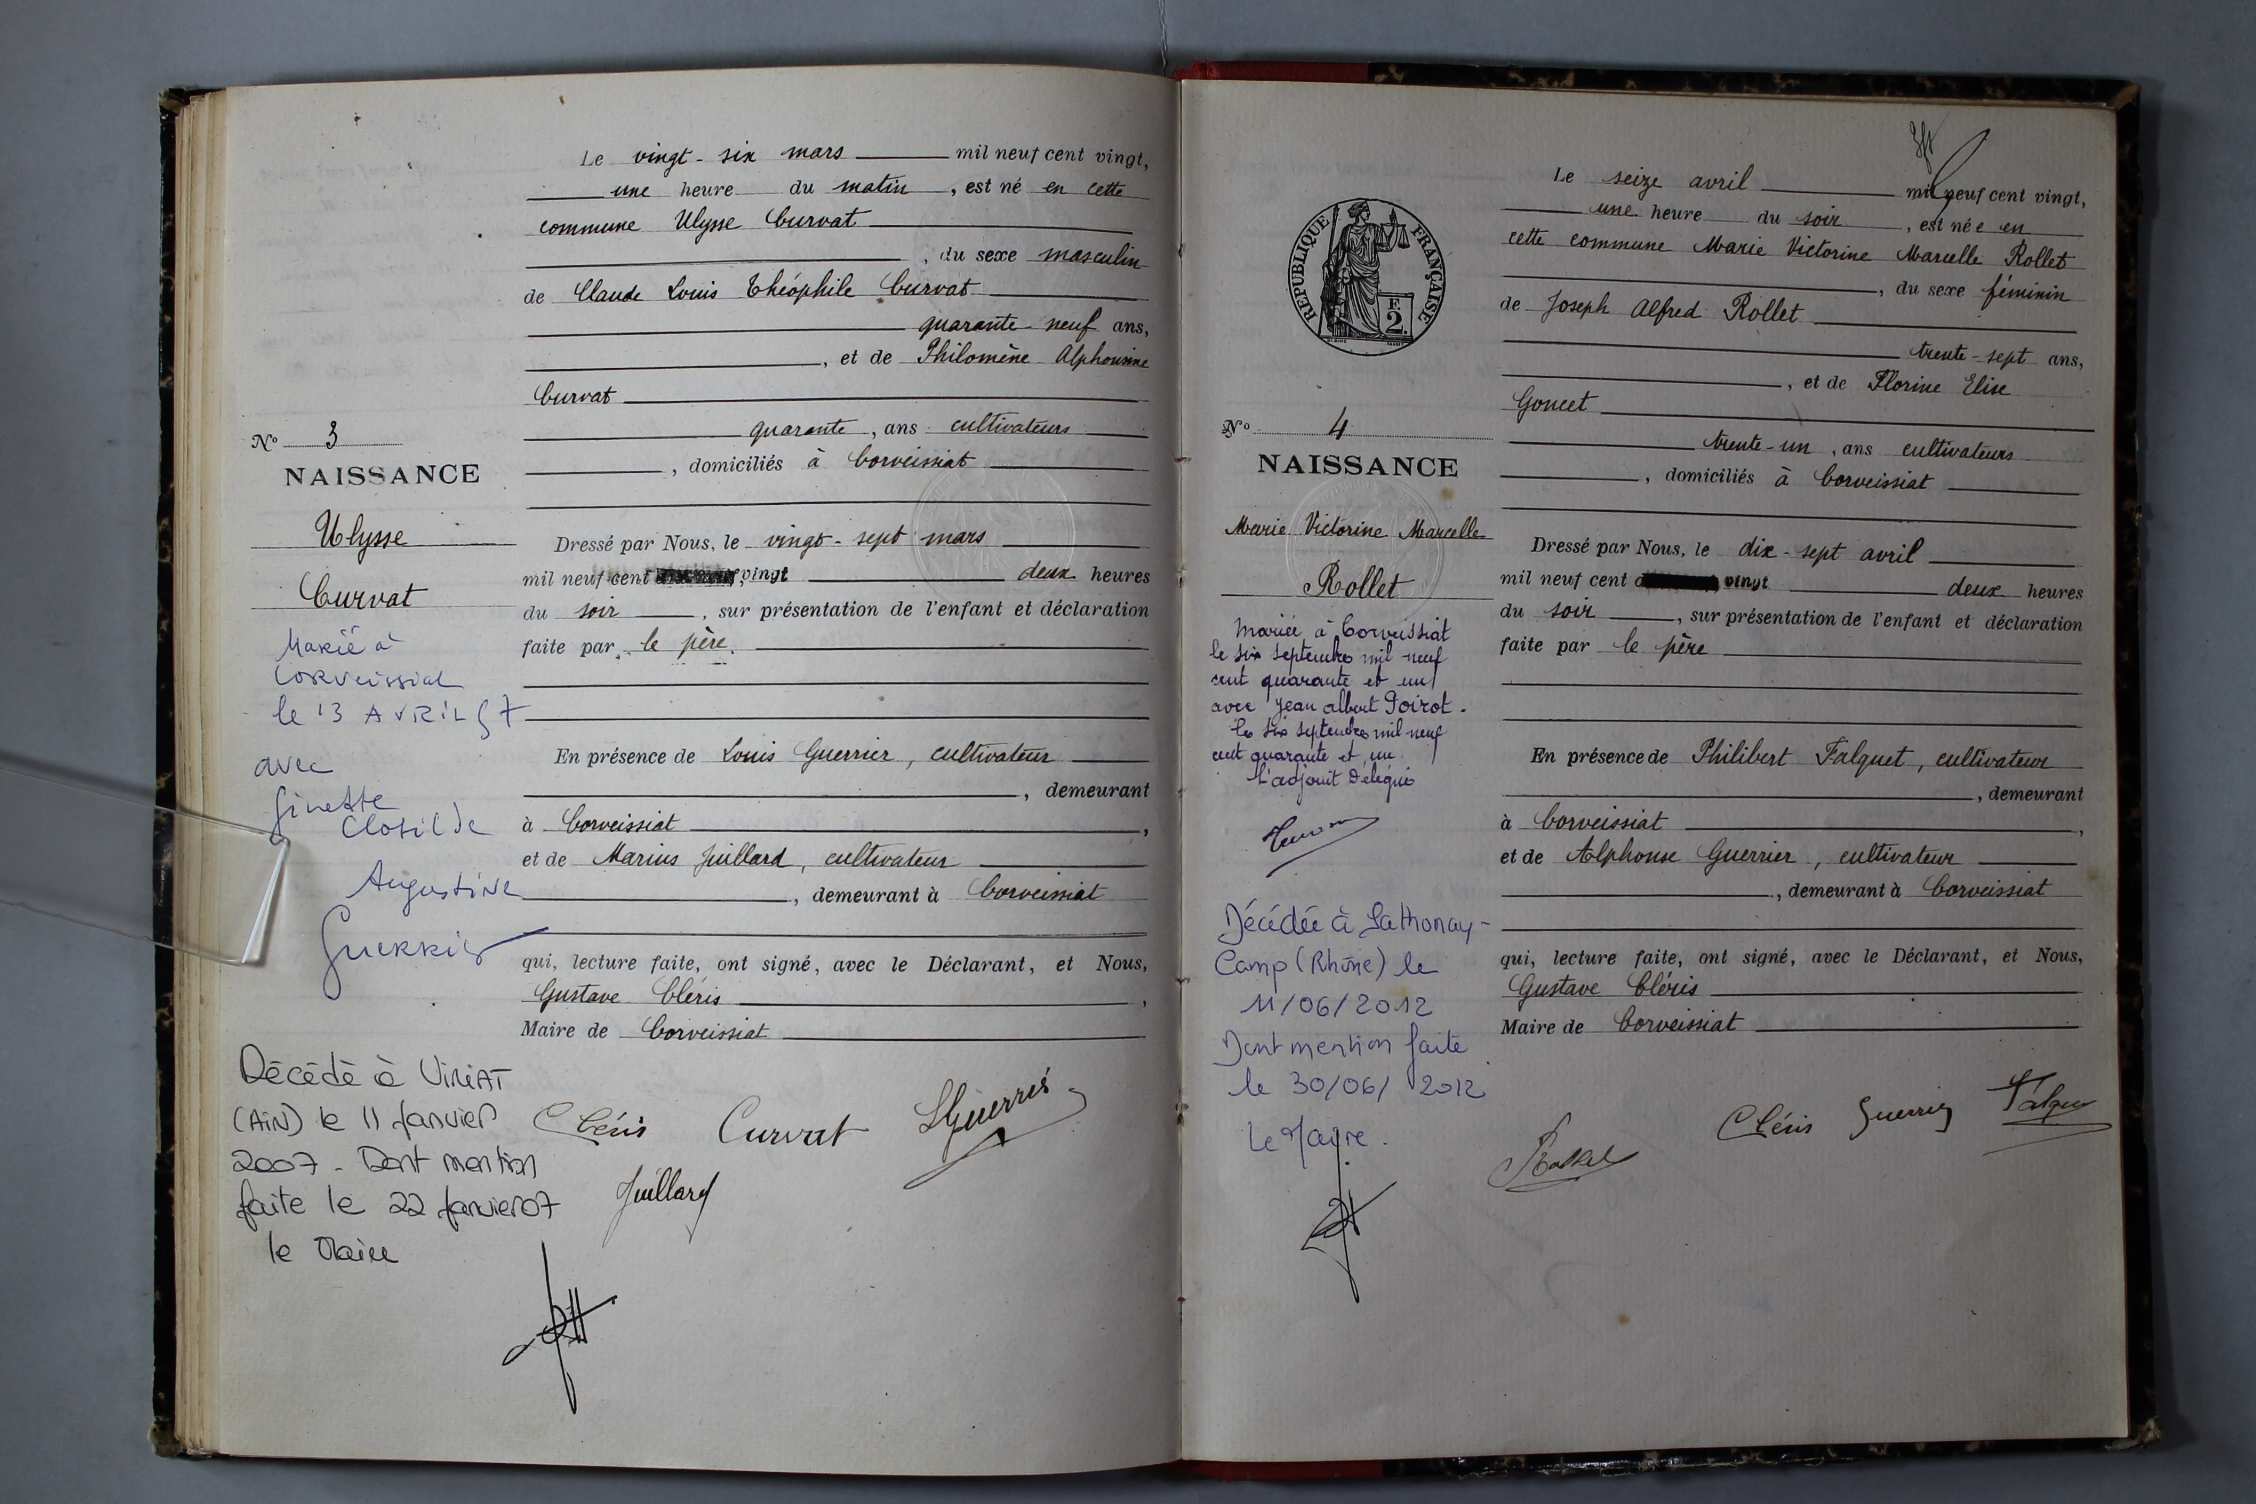 Le vingt-six mars mil neuf cent vingt,
une heure du matin, est né en cette
commune Ulysse Curvat
, du sexe masculin
de Claude Louis Théophile Curvat
quarante-neuf ans,
, et de Philomène Alphonsine
Curvat
quarante, ans cultivateurs
, domiciliés à Corveissiat
Dressé par Nous, le vingt-sept mars
mil neuf cent vingt deux heures
du soir, sur présentation de l'enfant et déclaration
faite par le père.
En présence de Louis Guerrier, cultivateur
, demeurant
à Corveissiat,
et de Marius Juillard, cultivateur
, demeurant à Corveissiat
qui, lecture faite, ont signé, avec le Déclarant, et Nous,
Gustave Cléris,
Maire de Corveissiat
Cléris Curvat LGuerrier
Juillard
No 3
NAISSANCE
Ulysse
Curvat
Marié à
Corveissiat
le 13 AVRIL 57
avec
Ginette
Clotilde
Augustine
Guerrier
Décédé à VIRIAT
(AIN) le 11 Janvier
2007 - Dont mention
faite le 22 Janvier 07
le Maire
REPUBLIQUE FRANÇAISE
F
2.
No 4
NAISSANCE
Marie Victorine Marcelle
Rollet
Mariée à Corveissiat
le six septembre mil neuf
cent quarante et un
avec Jean Albert Poirot.
le six septembre mil neuf
cent quarante et un
L'adjoint Délégué
Décédée à Sathonay-
Camp (Rhône) le
11/06/2012
Dont mention faite
le 30/06/2012
Le Maire.
Le seize avril mil neuf cent vingt,
une heure du soir, est née en
cette commune Marie Victorine Marcelle Rollet
, du sexe féminin
de Joseph Alfred Rollet
trente-sept ans,
, et de Florine Elise
Goncet
trente-un, ans cultivateurs
, domiciliés à Corveissiat
Dressé par Nous, le dix-sept avril
mil neuf cent vingt deux heures
du soir, sur présentation de l'enfant et déclaration
faite par le père
En présence de Philibert Falquet, cultivateur
, demeurant
à Corveissiat,
et de Alphonse Guerrier, cultivateur
, demeurant à Corveissiat
qui, lecture faite, ont signé, avec le Déclarant, et Nous,
Gustave Cléris
Maire de Corveissiat
Rollet Cléris Guerrier Falquet